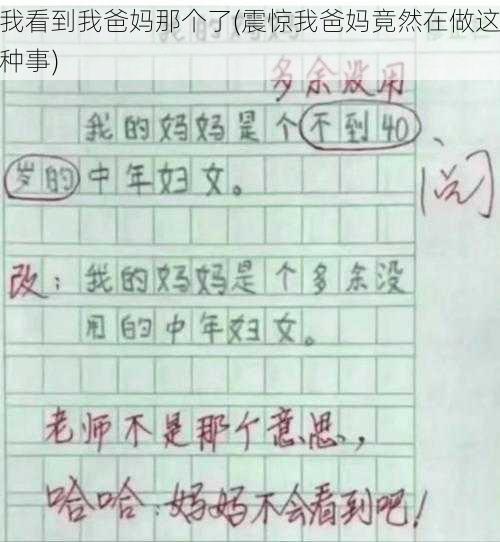 我看到我爸妈那个了(震惊我爸妈竟然在做这
种事)
多余没用
我的妈妈是个不到40
岁的中年妇女。
阅
改：我的妈妈是个多余没
用的中年妇女。
老师不是那个意思，
哈哈：妈妈不会看到吧！